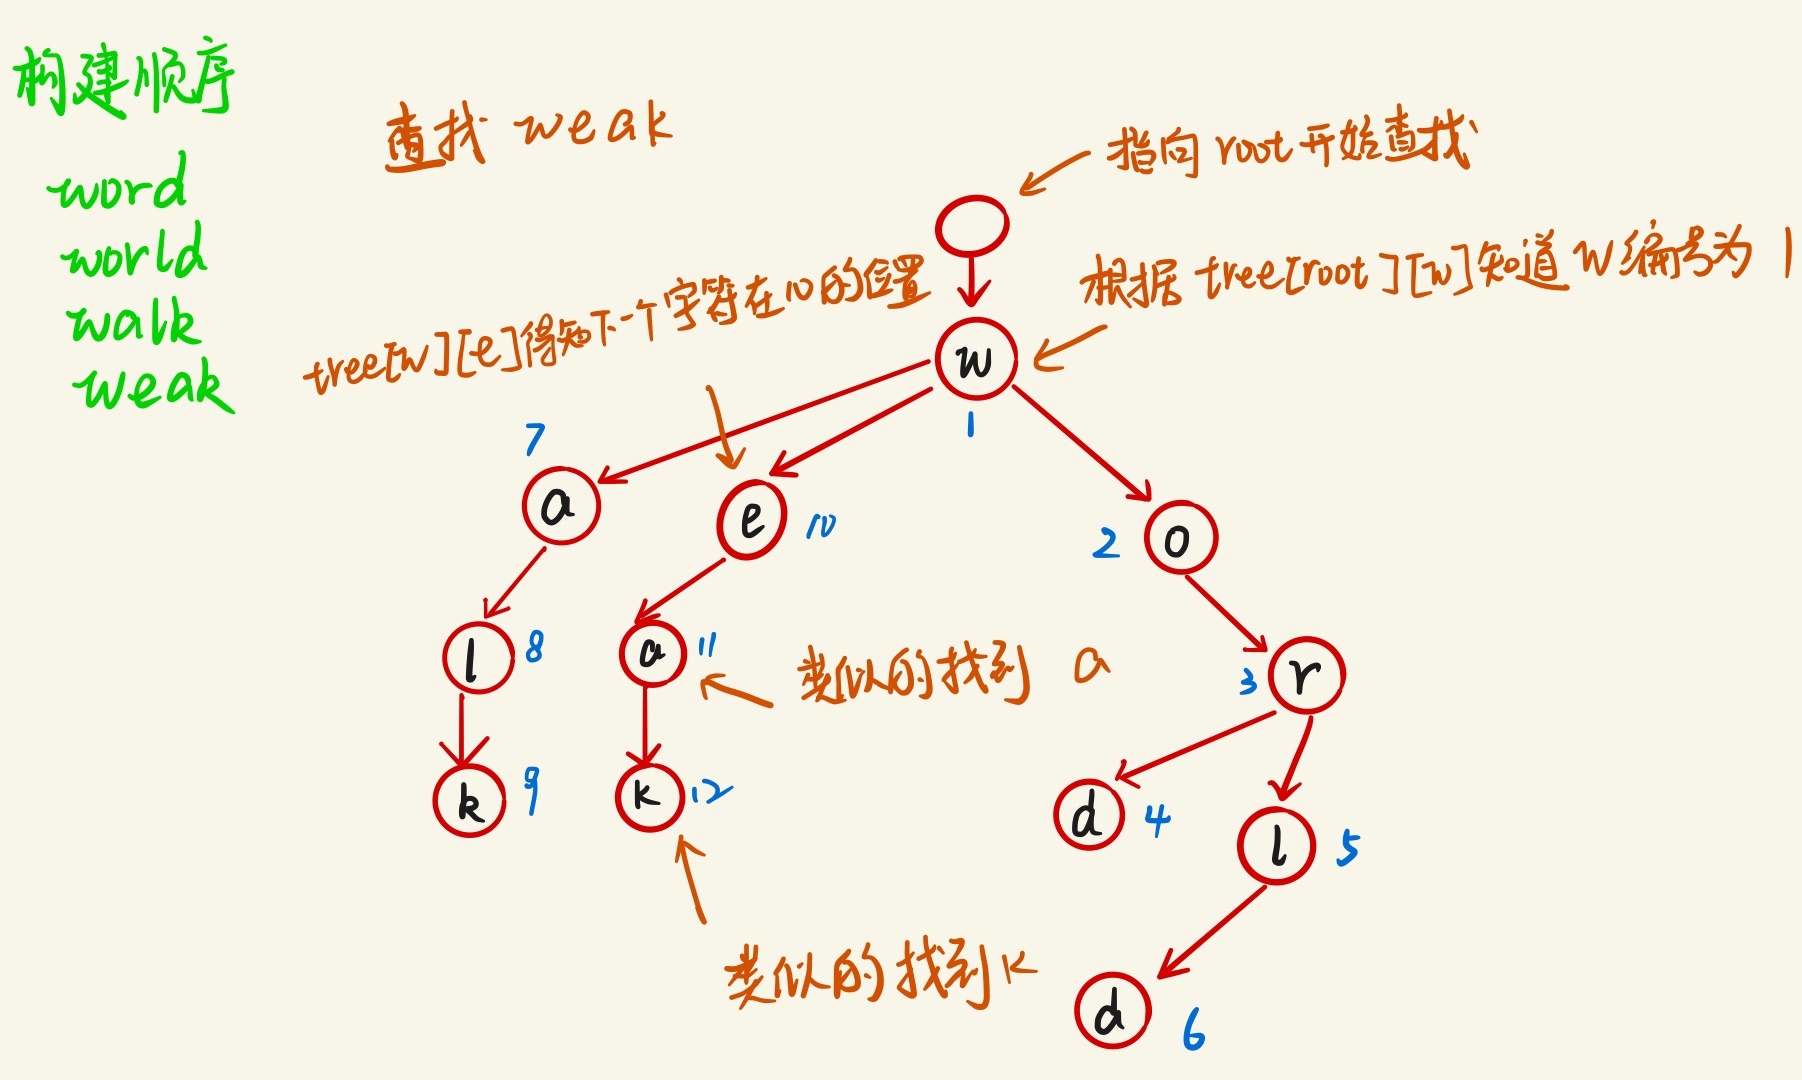 构建顺序
word
world
walk
weak
查找 weak
指向 root 开始查找
根据 tree[root][w] 知道 w 编号为 1
tree[w][e] 得知下一个字符在10的位置
w
1
7
a
e
10
2
o
l
8
a
11
类似的找到 a
3
r
k
9
k
12
d
4
l
5
类似的找到 k
d
6